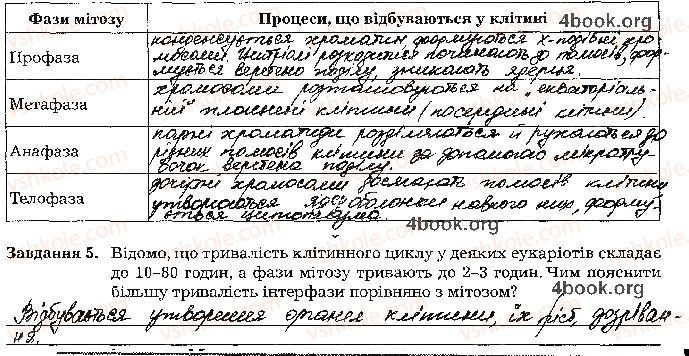 Фази мітозу Процеси, що відбуваються у клітині
4book.org
Профаза
конденсується хроматин формуються х-подібні хро-
мосоми. Центріолі розходяться починають до полюсів, фор-
мується веретено поділу, зникають ядерця.
Метафаза
хромосоми розташовуються на "екваторіаль-
ній" площині клітини (посередині клітини).
Анафаза
парні хроматиди розділяються й рухаються до
різних полюсів клітини за допомогою мікротру-
бочок веретена поділу.
Телофаза
дочірні хромосоми досягають полюсів клітини
утворюються ядерні оболонки навколо них, форму-
ється цитоплазма.
4book.org
Завдання 5. Відомо, що тривалість клітинного циклу у деяких еукаріотів складає
до 10–80 годин, а фази мітозу тривають до 2–3 годин. Чим пояснити
більшу тривалість інтерфази порівняно з мітозом?
4book.org
Відбувається утворення органел клітини, їх ріст, дозріван-
ня.